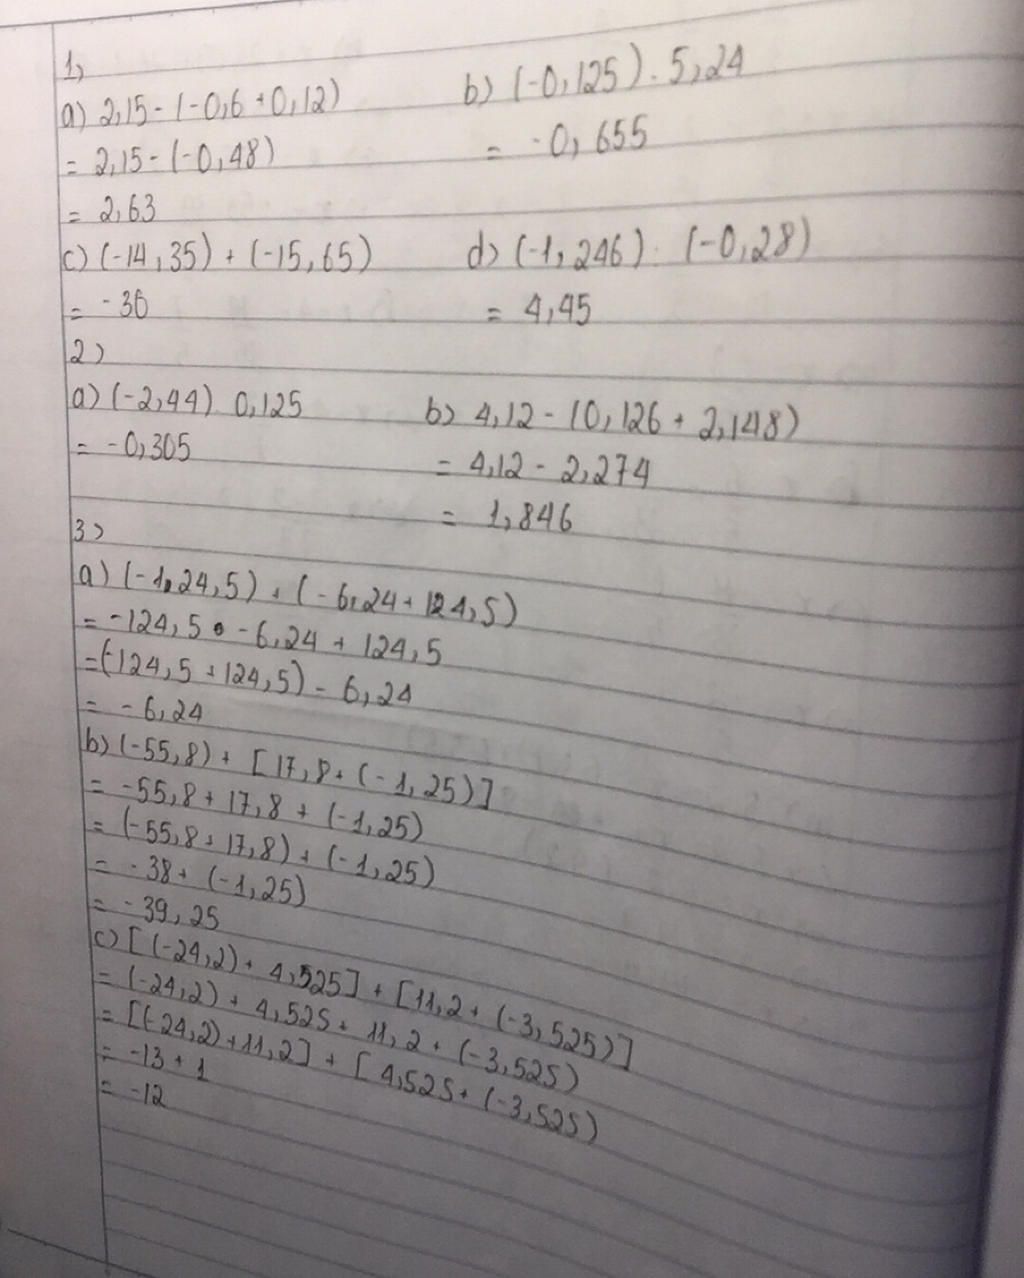 1,
a) 2,15 - (-0,6 + 0,12)
= 2,15 - (-0,48)
= 2,63
b) (-0,125) . 5,24
= -0,655
c) (-14,35) + (-15,65)
= -30
d) (-1,246) : (-0,28)
= 4,45
2)
a) (-2,44) 0,125
= -0,305
b) 4,12 - (0,126 + 2,148)
= 4,12 - 2,274
= 1,846
3)
a) (-1,24,5) + (-6,24 + 124,5)
= -124,5 - 6,24 + 124,5
= (-124,5 + 124,5) - 6,24
= -6,24
b) (-55,8) + [17,8 + (-1,25)]
= -55,8 + 17,8 + (-1,25)
= (-55,8 + 17,8) + (-1,25)
= -38 + (-1,25)
= -39,25
c) [(-24,2) + 4,525] + [11,2 + (-3,525)]
= (-24,2) + 4,525 + 11,2 + (-3,525)
= [(-24,2) + 11,2] + [4,525 + (-3,525)
= -13 + 1
= -12